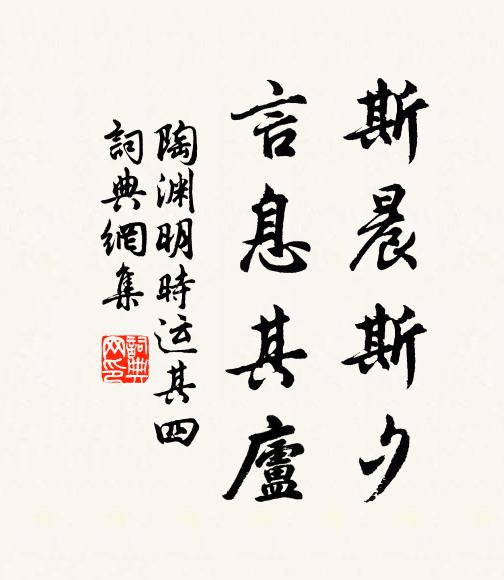 斯晨斯夕
言息其廬
陶渊明時运其四
詞典網集
詞典网印